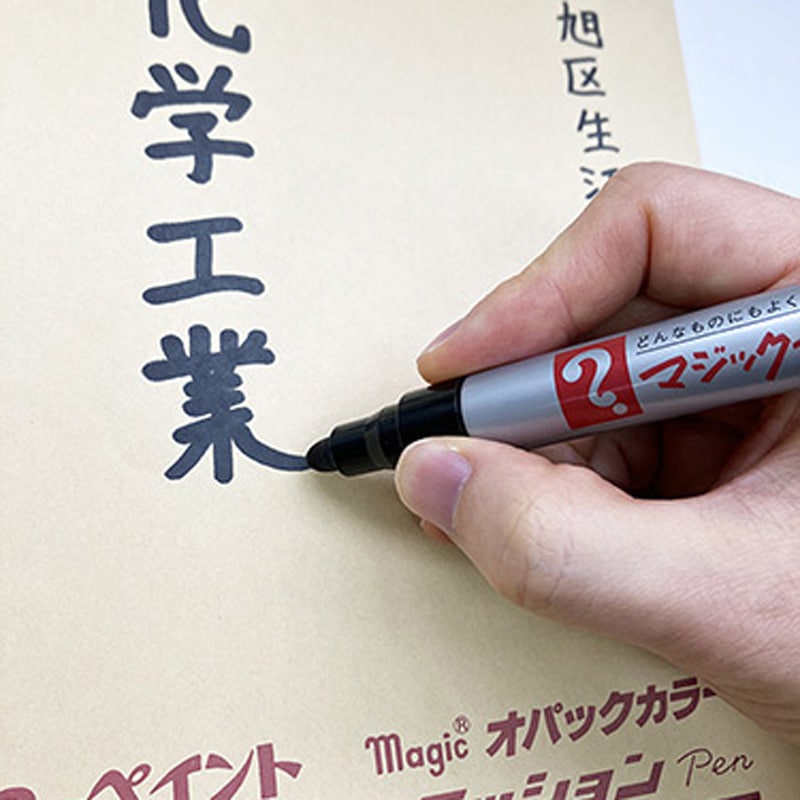 旭区生
化学工業
どんなものにもよく
マジック
Magic® オパックカラー
ペイント
ッション Pen